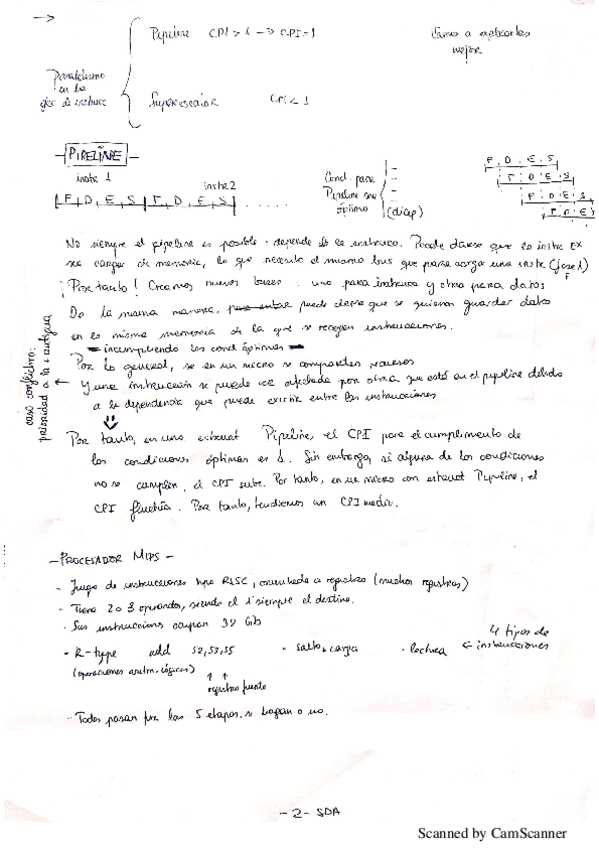 Pipeline CPI > 1 → CPI=1
Vamos a explicarlos
mejor
Paralelismo
en la
Superescalar CPI < 1
- PIPELINE -
instr 1
instr 2
F, D, E, S, F, D, E, S, .....
Cond. para
Pipeline sea
óptimo (diap)
F. D. E. S
F. D. E. S
F. D. E. S
F. D. E. S
No siempre el pipeline es posible: depende de la instrucc. Puede darse que la instr EX
sea cargar de memoria, lo que necesita el mismo bus que para cargar una instr (fase 1)
F
¡Por tanto! Creamos nuevos buses: uno para instrucc y otro para datos
De la misma manera, puede darse que se quieran guardar datos
en la misma memoria de la que se recogen instrucciones.
incumpliendo las cond óptimas
caso conflictivo:
prioridad a la + antigua
Por lo general, se en un micro se comparten recursos
← Y una instrucción se puede ver afectada por otra que está en el pipeline debido
a la dependencia que puede existir entre las instrucciones
Por tanto, en una estruct Pipeline, el CPI para el cumplimiento de
las condiciones óptimas es 1. Sin embargo, si alguna de las condiciones
no se cumplen, el CPI sube. Por tanto, en un micro con estruct Pipeline, el
CPI fluctúa. Por tanto, tendremos un CPI medio.
- PROCESADOR MIPS -
- Juego de instrucciones tipo RISC, orientada a registro (muchos registros)
- Tiene 2 o 3 operandos, siendo el 1º siempre el destino.
- Sus instrucciones ocupan 32 bits
- R-type add S2, S3, S5 - salto, carga - lectura ← 4 tipos de
instrucciones
(operaciones aritm. lógicas)
registros fuente
- Todas pasan por las 5 etapas, se hagan o no.
- 2 - SDA
Scanned by CamScanner